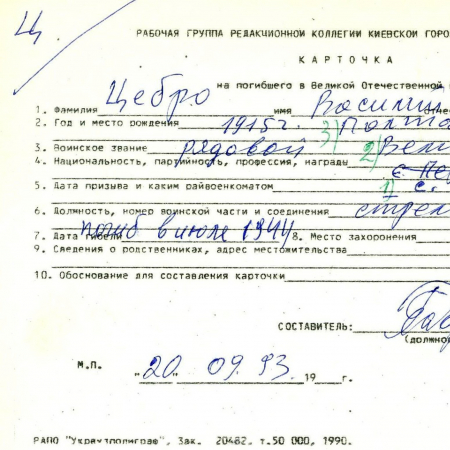 Ц.
РАБОЧАЯ ГРУППА РЕДАКЦИОННОЙ КОЛЛЕГИИ КИЕВСКОЙ ГОРО
КАРТОЧКА
на погибшего в Великой Отечественной
1. Фамилия Цебро имя Василий отче
2. Год и место рождения 1915г. 3) Полта
3. Воинское звание рядовой 2) Вели
4. Национальность, партийность, профессия, награды
5. Дата призыва и каким райвоенкоматом 1) с.
6. Должность, номер воинской части и соединения стрел
7. Дата гибели погиб в июле 1944 8. Место захоронения
9. Сведения о родственниках, адрес местожительства
10. Обоснование для составления карточки
СОСТАВИТЕЛЬ:
(должно
М.П. "20" 09.93 19 г.
РАПО "Укрвтполиграф", Зак. 20482. т.50 000, 1990.